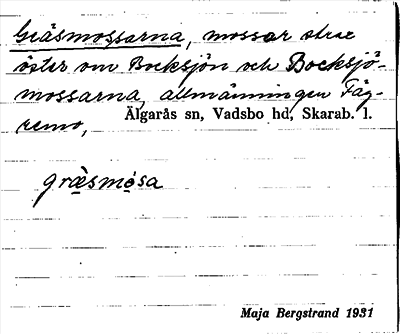 Gräsmossarna, mossar strax
öster om Bocksjön och Bocksjö-
mossarna, allmänningen Fäg-
remo, Älgarås sn, Vadsbo hd, Skarab. l.
græ̀smo̤sa
Maja Bergstrand 1931